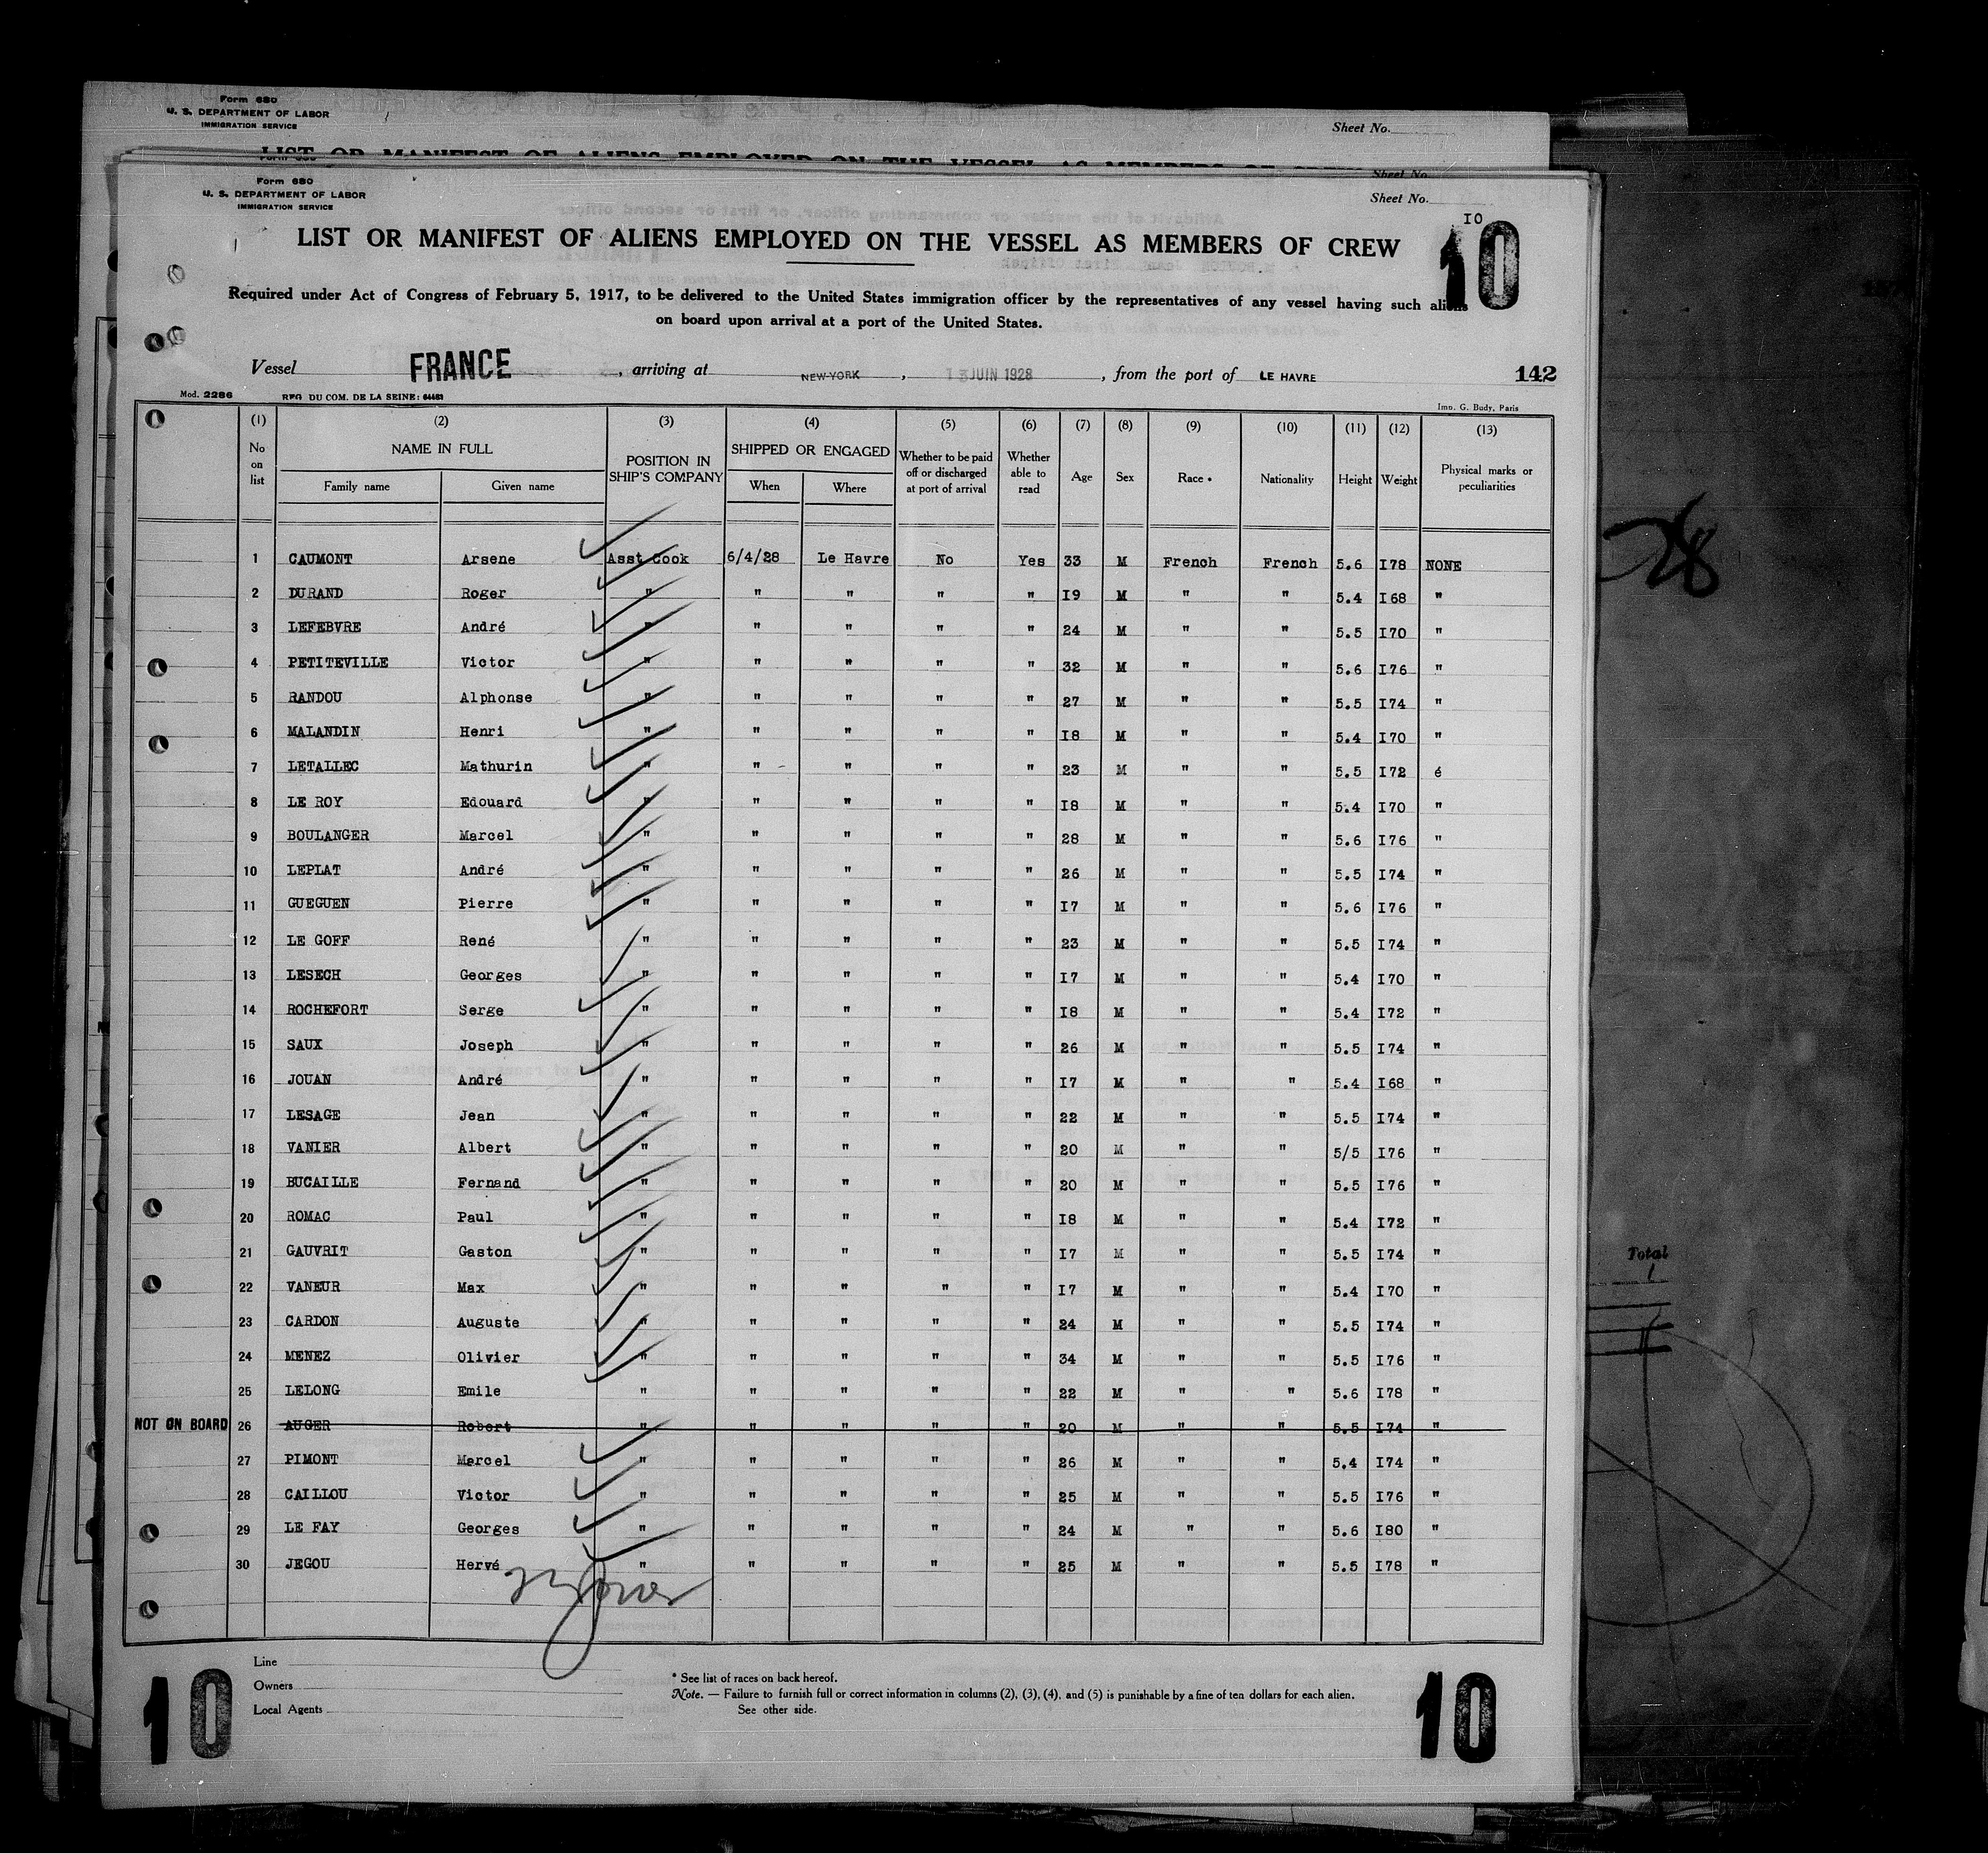 Form 680
U. S. DEPARTMENT OF LABOR
IMMIGRATION SERVICE
Sheet No.
LIST OR MANIFEST OF ALIENS EMPLOYED ON THE VESSEL AS MEMBERS OF CREW
Sheet No.
Form 680
U. S. DEPARTMENT OF LABOR
IMMIGRATION SERVICE
Sheet No.
I0
10
LIST OR MANIFEST OF ALIENS EMPLOYED ON THE VESSEL AS MEMBERS OF CREW
Required under Act of Congress of February 5, 1917, to be delivered to the United States immigration officer by the representatives of any vessel having such aliens
on board upon arrival at a port of the United States.
Vessel FRANCE, arriving at NEW-YORK, 13 JUIN 1928, from the port of LE HAVRE 142
Mod. 2286 REG. DU COM. DE LA SEINE: 64481 Imp. G. Budy, Paris
(1) (2) (3) (4) (5) (6) (7) (8) (9) (10) (11) (12) (13)
No on list NAME IN FULL POSITION IN SHIP'S COMPANY SHIPPED OR ENGAGED Whether to be paid off or discharged at port of arrival Whether able to read Age Sex Race * Nationality Height Weight Physical marks or peculiarities
Family name Given name When Where
1 CAUMONT Arsene Asst Cook 6/4/28 Le Havre No Yes 33 M French French 5.6 I78 NONE
2 DURAND Roger " " " " " I9 M " " 5.4 I68 "
3 LEFEBVRE André " " " " " 24 M " " 5.5 I70 "
4 PETITEVILLE Victor " " " " " 32 M " " 5.6 I76 "
5 RANDOU Alphonse " " " " " 27 M " " 5.5 I74 "
6 MALANDIN Henri " " " " " I8 M " " 5.4 I70 "
7 LETALLEC Mathurin " " " " " 23 M " " 5.5 I72 é
8 LE ROY Edouard " " " " " I8 M " " 5.4 I70 "
9 BOULANGER Marcel " " " " " 28 M " " 5.6 I76 "
10 LEPLAT André " " " " " 26 M " " 5.5 I74 "
11 GUEGUEN Pierre " " " " " I7 M " " 5.6 I76 "
12 LE GOFF René " " " " " 23 M " " 5.5 I74 "
13 LESECH Georges " " " " " I7 M " " 5.4 I70 "
14 ROCHEFORT Serge " " " " " I8 M " " 5.4 I72 "
15 SAUX Joseph " " " " " 26 M " " 5.5 I74 "
16 JOUAN André " " " " " I7 M " " 5.4 I68 "
17 LESAGE Jean " " " " " 22 M " " 5.5 I74 "
18 VANIER Albert " " " " " 20 M " " 5/5 I76 "
19 BUCAILLE Fernand " " " " " 20 M " " 5.5 I76 "
20 ROMAC Paul " " " " " I8 M " " 5.4 I72 "
21 GAUVRIT Gaston " " " " " I7 M " " 5.5 I74 "
22 VANEUR Max " " " " " I7 M " " 5.4 I70 "
23 CARDON Auguste " " " " " 24 M " " 5.5 I74 "
24 MENEZ Olivier " " " " " 34 M " " 5.5 I76 "
25 LELONG Emile " " " " " 22 M " " 5.6 I78 "
NOT ON BOARD 26 AUGER Robert " " " " " 20 M " " 5.5 I74 "
27 PIMONT Marcel " " " " " 26 M " " 5.4 I74 "
28 CAILLOU Victor " " " " " 25 M " " 5.5 I76 "
29 LE FAY Georges " " " " " 24 M " " 5.6 I80 "
30 JEGOU Hervé " " " " " 25 M " " 5.5 I78 "
Line
Owners
Local Agents
* See list of races on back hereof.
Note. — Failure to furnish full or correct information in columns (2), (3), (4), and (5) is punishable by a fine of ten dollars for each alien.
See other side.
10
10
Total